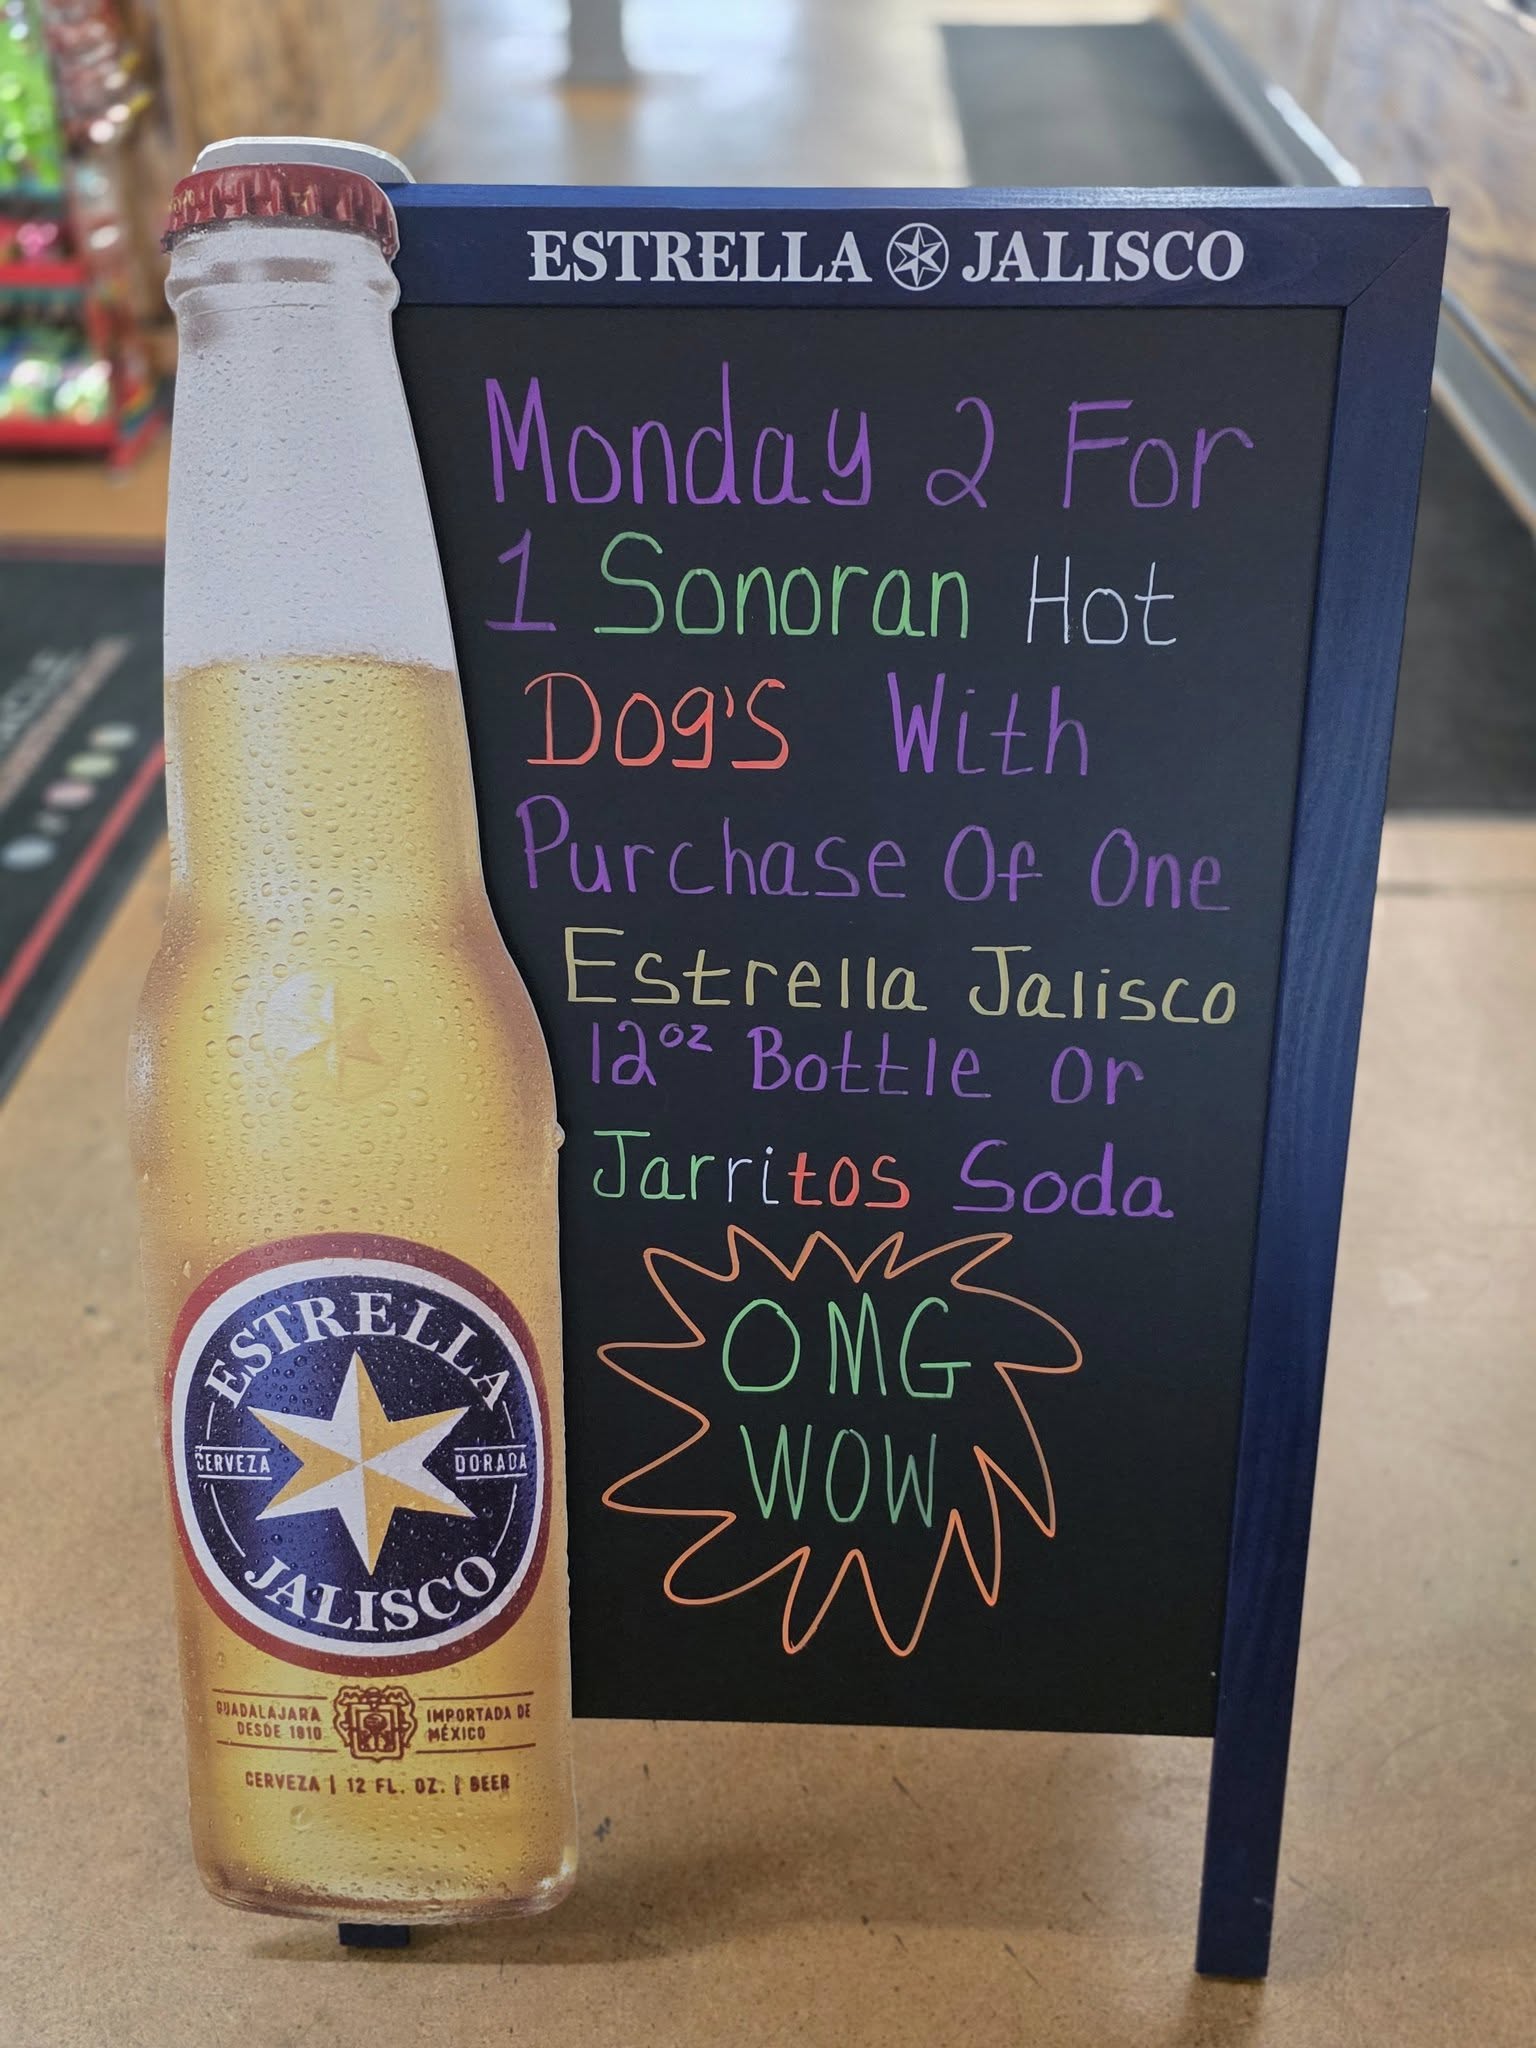 ESTRELLA JALISCO
Monday 2 For
1 Sonoran Hot
Dog's With
Purchase Of One
Estrella Jalisco
12oz Bottle or
Jarritos Soda
OMG
WOW
ESTRELLA
CERVEZA DORADA
JALISCO
GUADALAJARA
DESDE 1910
IMPORTADA DE
MÉXICO
CERVEZA | 12 FL. OZ. | BEER